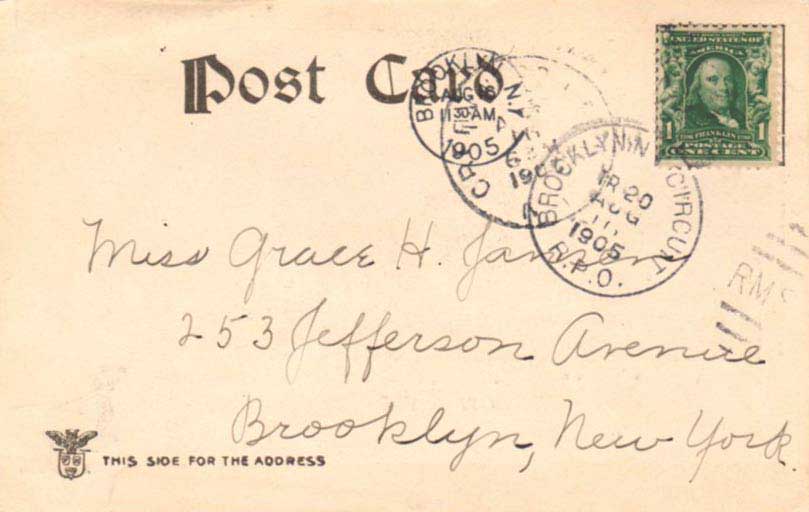 Post Card
SERIES 1902
UNITED STATES OF
AMERICA
1 FRANKLIN 1
POSTAGE
ONE CENT
BROOKLYN N.Y.
AUG 16
11 30 AM
1905
BROOKLYN N.Y. CIRCUIT
TR 20
AUG
1905
R.P.O.
RMS
Miss Grace H. Jansen
253 Jefferson Avenue
Brooklyn, New York.
THIS SIDE FOR THE ADDRESS